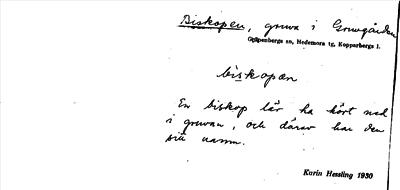 Biskopen, gruva i Gruvgården
Garpenbergs sn, Hedemora tg, Kopparbergs l.
biskopen
En biskop lär ha kört ned
i gruvan, och därav har den
sitt namn.
Karin Hessling 1930